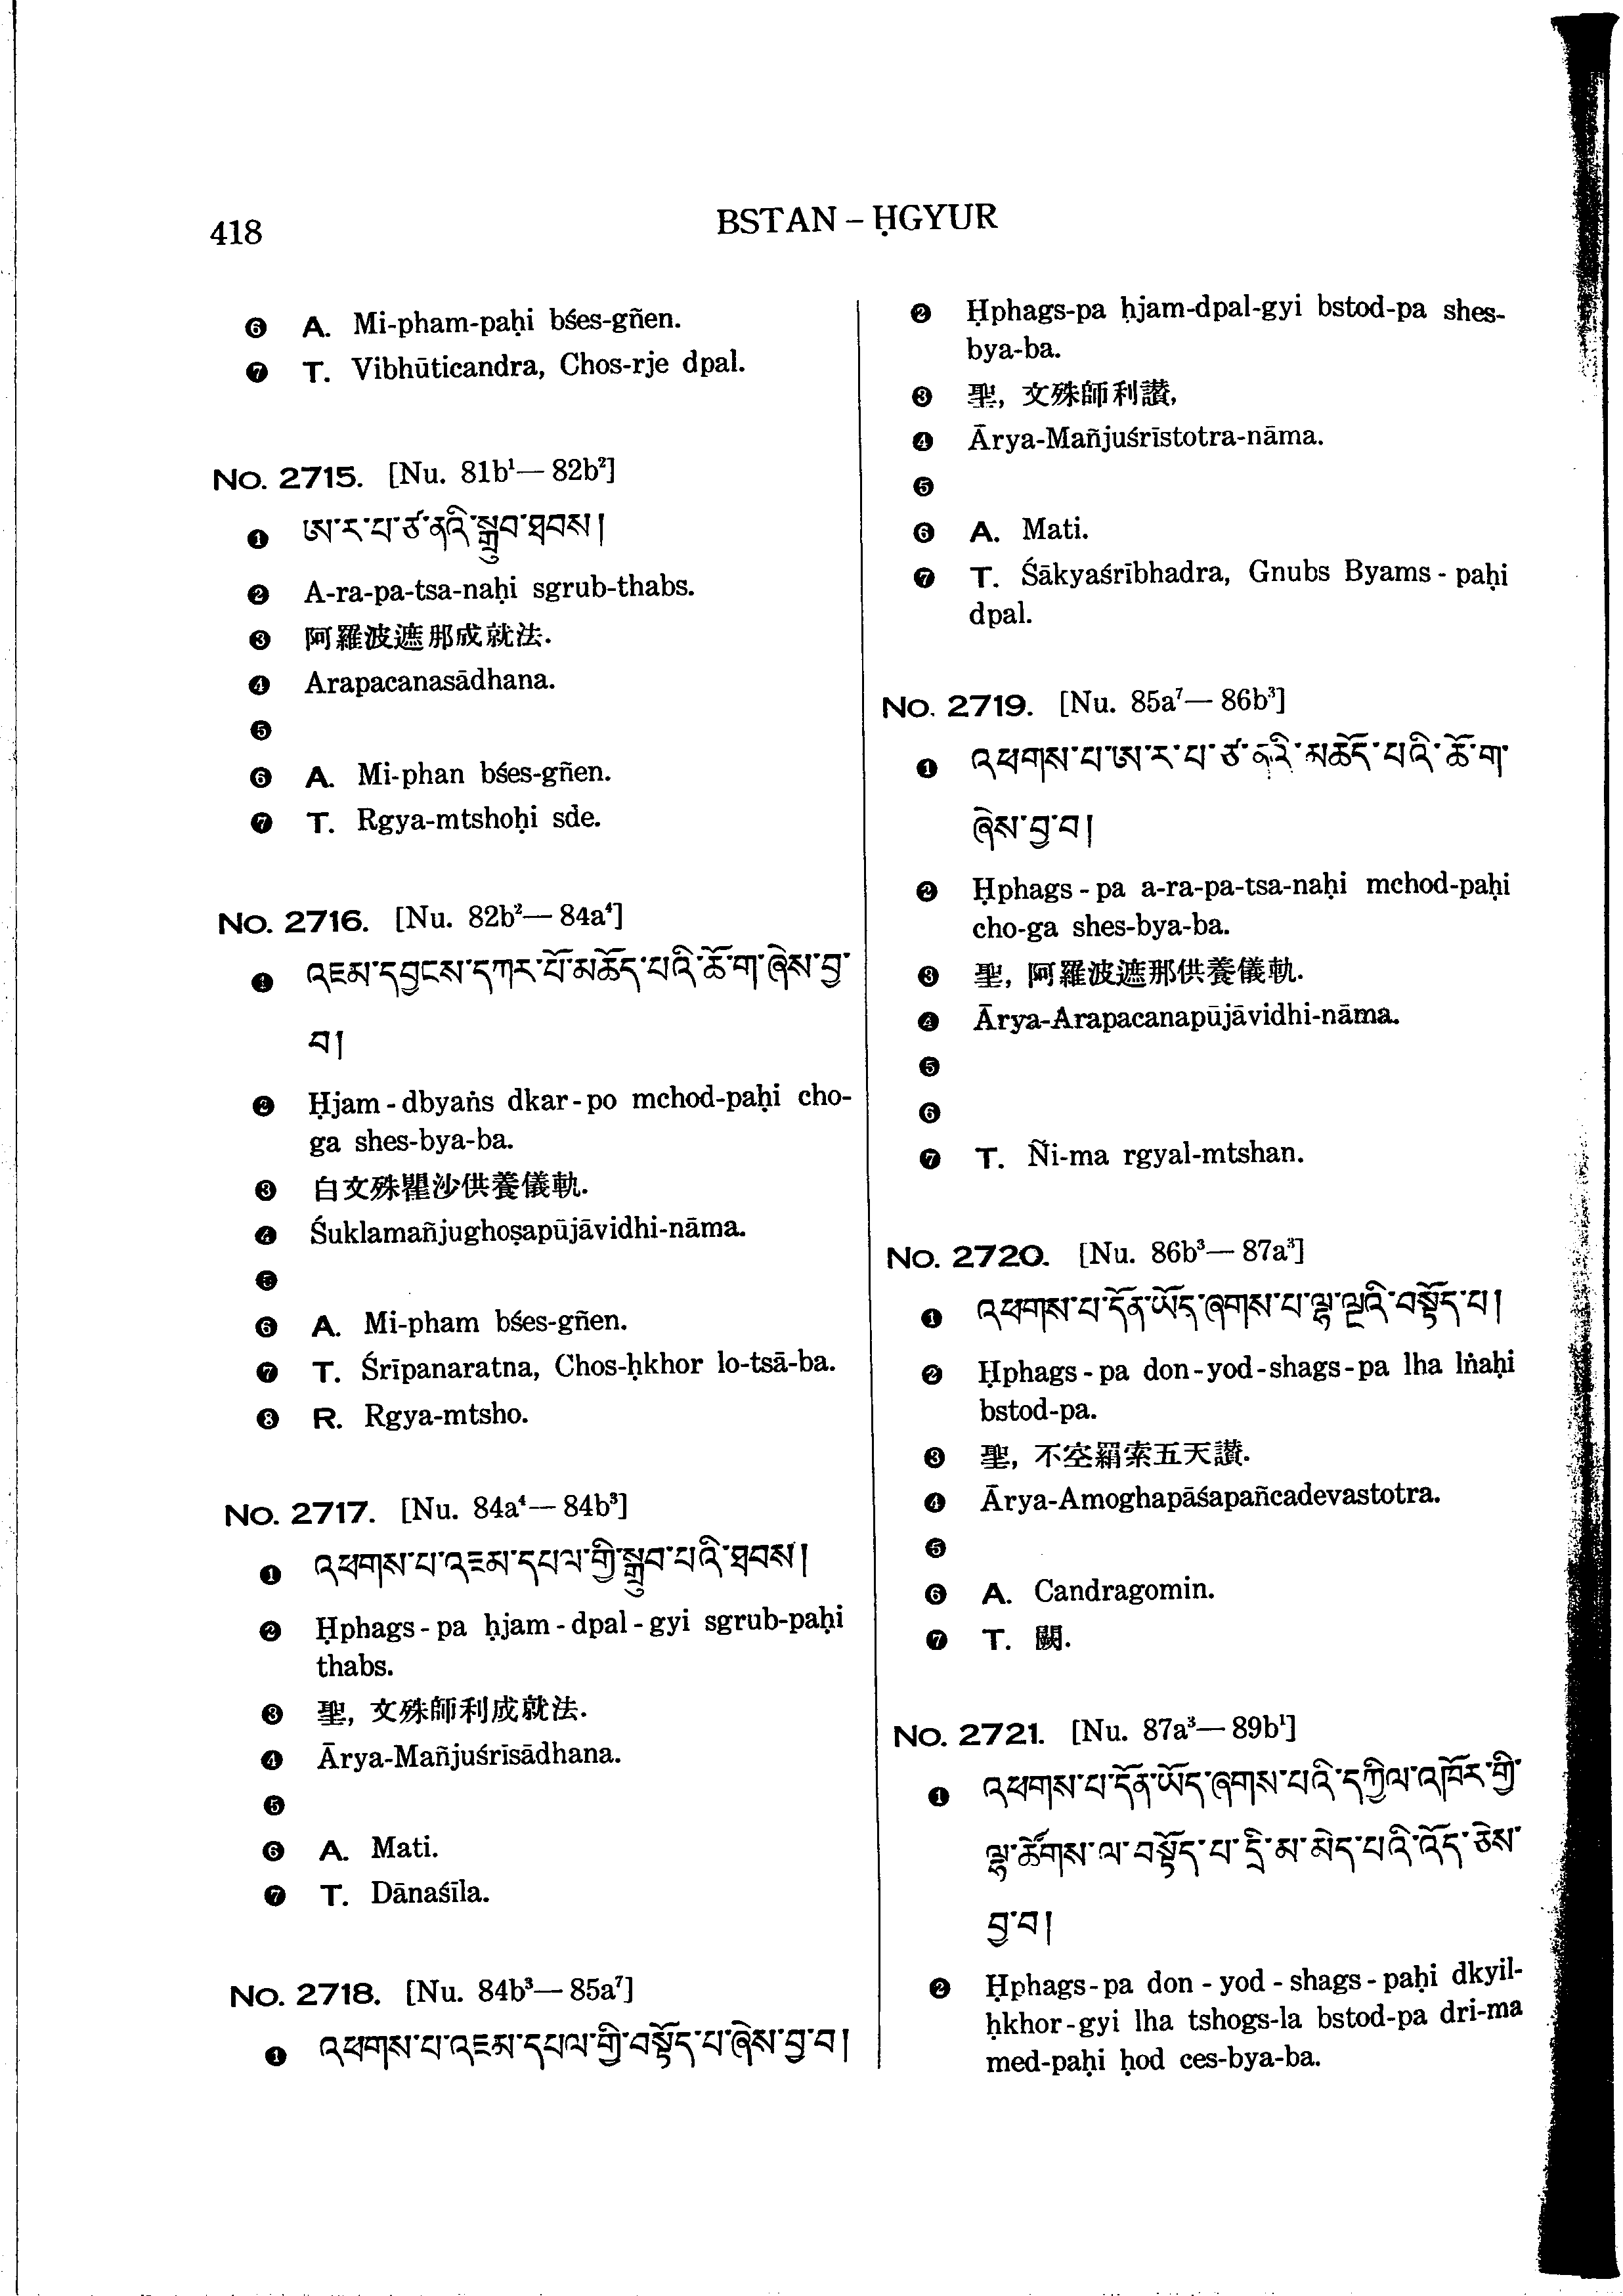 418
BSTAN – ḤGYUR
❻ A. Mi-pham-paḥi bśes-gñen.
❼ T. Vibhūticandra, Chos-rje dpal.
No. 2715. [Nu. 81b¹— 82b²]
❶ ཨ་ར་པ་ཙ་ནའི་སྒྲུབ་ཐབས།
❷ A-ra-pa-tsa-naḥi sgrub-thabs.
❸ 阿羅波遮那成就法.
❹ Arapacanasādhana.
❺
❻ A. Mi-phan bśes-gñen.
❼ T. Rgya-mtshoḥi sde.
No. 2716. [Nu. 82b²— 84a⁴]
❶ འཇམ་དབྱངས་དཀར་པོ་མཆོད་པའི་ཆོ་ག་ཞེས་བྱ་
བ།
❷ Ḥjam - dbyaṅs dkar - po mchod-paḥi cho-
ga shes-bya-ba.
❸ 白文殊瞿沙供養儀軌.
❹ Śuklamañjughoṣapūjāvidhi-nāma.
❺
❻ A. Mi-pham bśes-gñen.
❼ T. Śrīpanaratna, Chos-ḥkhor lo-tsā-ba.
❽ R. Rgya-mtsho.
No. 2717. [Nu. 84a⁴— 84b³]
❶ འཕགས་པ་འཇམ་དཔལ་གྱི་སྒྲུབ་པའི་ཐབས།
❷ Ḥphags - pa ḥjam - dpal - gyi sgrub-paḥi
thabs.
❸ 聖, 文殊師利成就法.
❹ Ārya-Mañjuśrīsādhana.
❺
❻ A. Mati.
❼ T. Dānaśīla.
No. 2718. [Nu. 84b³— 85a⁷]
❶ འཕགས་པ་འཇམ་དཔལ་གྱི་བསྟོད་པ་ཞེས་བྱ་བ།
❷ Ḥphags-pa ḥjam-dpal-gyi bstod-pa shes-
bya-ba.
❸ 聖, 文殊師利讃,
❹ Ārya-Mañjuśrīstotra-nāma.
❺
❻ A. Mati.
❼ T. Śākyaśrībhadra, Gnubs Byams - paḥi
dpal.
No. 2719. [Nu. 85a⁷— 86b³]
❶ འཕགས་པ་ཨ་ར་པ་ཙ་ནའི་མཆོད་པའི་ཆོ་ག་
ཞེས་བྱ་བ།
❷ Ḥphags - pa a-ra-pa-tsa-naḥi mchod-paḥi
cho-ga shes-bya-ba.
❸ 聖, 阿羅波遮那供養儀軌.
❹ Ārya-Arapacanapūjāvidhi-nāma.
❺
❻
❼ T. Ñi-ma rgyal-mtshan.
No. 2720. [Nu. 86b³— 87a³]
❶ འཕགས་པ་དོན་ཡོད་ཞགས་པ་ལྷ་ལྔའི་བསྟོད་པ།
❷ Ḥphags - pa don - yod - shags - pa lha lṅaḥi
bstod-pa.
❸ 聖, 不空羂索五天讃.
❹ Ārya-Amoghapāśapañcadevastotra.
❺
❻ A. Candragomin.
❼ T. 闕.
No. 2721. [Nu. 87a³— 89b¹]
❶ འཕགས་པ་དོན་ཡོད་ཞགས་པའི་དཀྱིལ་འཁོར་གྱི་
ལྷ་ཚོགས་ལ་བསྟོད་པ་དྲི་མ་མེད་པའི་འོད་ཅེས་
བྱ་བ།
❷ Ḥphags - pa don - yod - shags - paḥi dkyil-
ḥkhor - gyi lha tshogs-la bstod-pa dri-ma
med-paḥi ḥod ces-bya-ba.